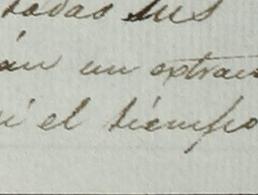 todas sus
án un extran
si el tiempo